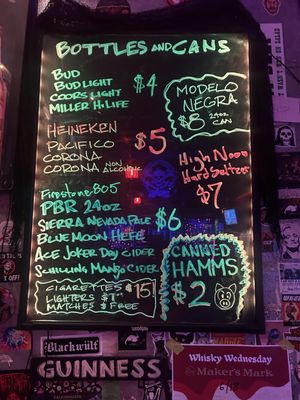 BOTTLES AND CANS
BUD
BUD LIGHT
COORS LIGHT
MILLER HI-LIFE
$4
MODELO
NEGRA
$8 24oz
CAN
HEINEKEN
PACIFICO
CORONA
CORONA NON ALCOHOLIC
$5
High Noon
Hard Seltzer
$7
Firestone 805
PBR 24oz
SIERRA NEVADA PALE
BLUE MOON HEFE
ACE JOKER DRY CIDER
SCHILLING MANGO CIDER
$6
CANNED
HAMMS
$2
CIGARETTES $15
LIGHTERS $1
MATCHES FREE
Blackwülf
GUINNESS
Whisky Wednesday
Maker's Mark